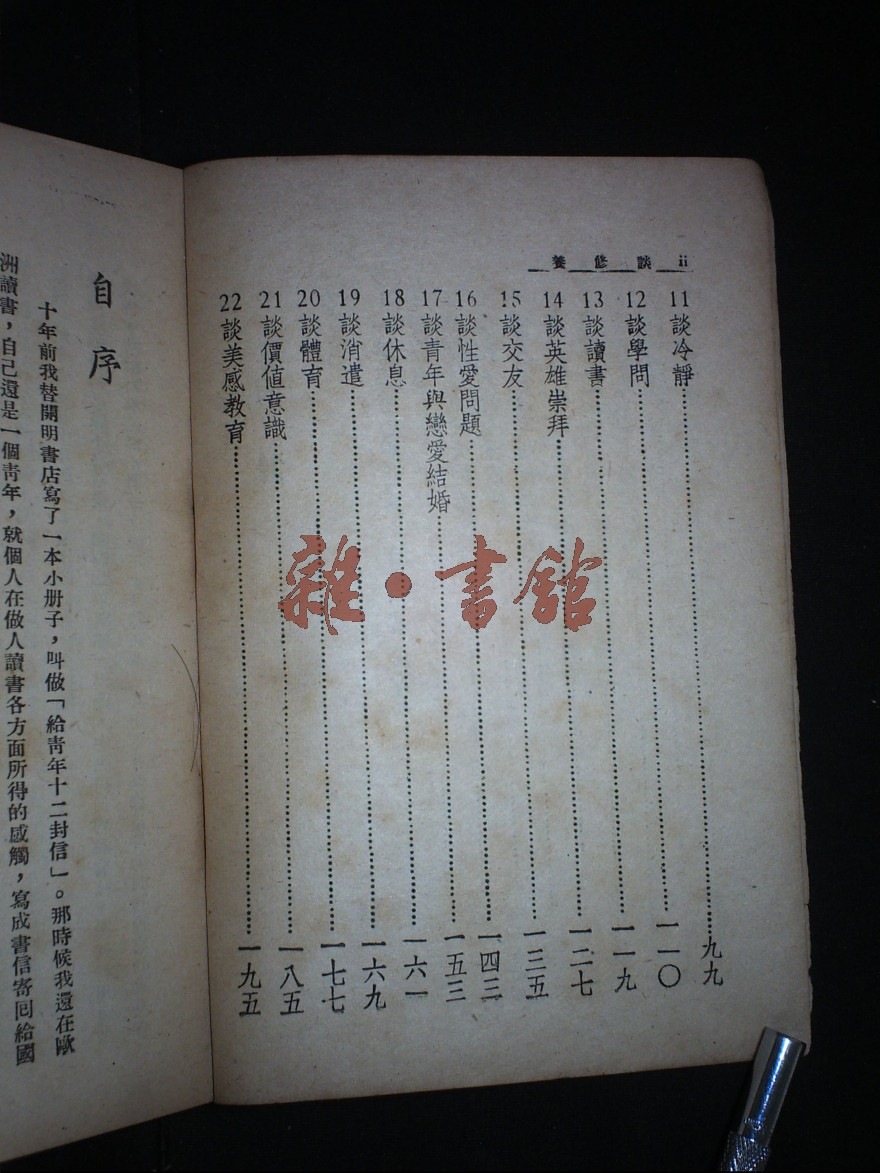 養修談 ii
11 談冷靜……九九
12 談學問……一一〇
13 談讀書……一一九
14 談英雄崇拜……一二七
15 談交友……一三五
16 談性愛問題……一四三
17 談青年與戀愛結婚……一五三
18 談休息……一六一
19 談消遣……一六九
20 談體育……一七七
21 談價值意識……一八五
22 談美感教育……一九五
雜·書館
自序
十年前我替開明書店寫了一本小册子,叫做「給靑年十二封信」。那時候我還在歐
洲讀書,自己還是一個靑年,就個人在做人讀書各方面所得的感觸,寫成書信寄囘給國